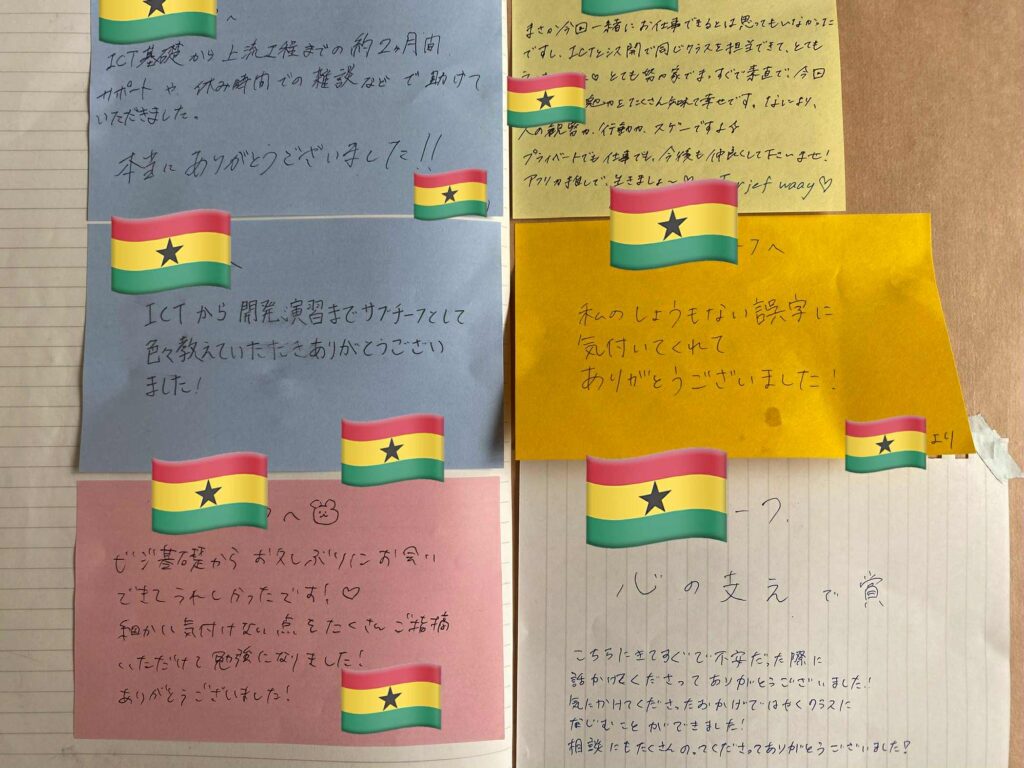 へ
ICT基礎から上流工程までの約2ヶ月間
サポートや、休み時間での雑談などで助けて
いただきました。
本当にありがとうございました!!
まさか今回一緒にお仕事できるとは思ってもいなかった
ですし、ICTとシス開で同じクラスを担当できて、とても
♡ とても努力家でまっすぐで素直で、今回
をたくさん
人の観察力、行動力、スゲーですよ
プライベートでも仕事でも、今後も仲良くして下さいませ!
アフリカ推しで、生きましょ〜♡ Jërejef waay♡
ICTから開発演習までサブチーフとして
色々教えていただきありがとうござい
ました!
ーフへ
私のしょうもない誤字に
気付いてくれて
ありがとうございました!
より
へ
ビジ基礎からお久しぶりにお会い
できてうれしかったです!♡
細かい気付けない点をたくさんご指摘
いただけて勉強になりました!
ありがとうございました!
ーフ.
心の支えで賞
こちらにきてすぐで不安だった際に
話かけてくださってありがとうございました!
気にかけてくださったおかげではやくクラスに
なじむことができました!
相談にもたくさんのってくださってありがとうございました!